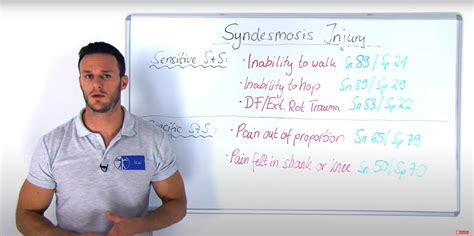 Syndesmosis Injury
Sensitive S+S:
· Inability to walk Sn 89/Sp 21
· Inability to hop Sn 89/Sp 29
· DF/Ext. Rot Trauma Sn 83/Sp 22
S+S:
· Pain out of proportion Sn 65/Sp 79
· Pain felt in shank or knee Sn 50/Sp 79
Kai